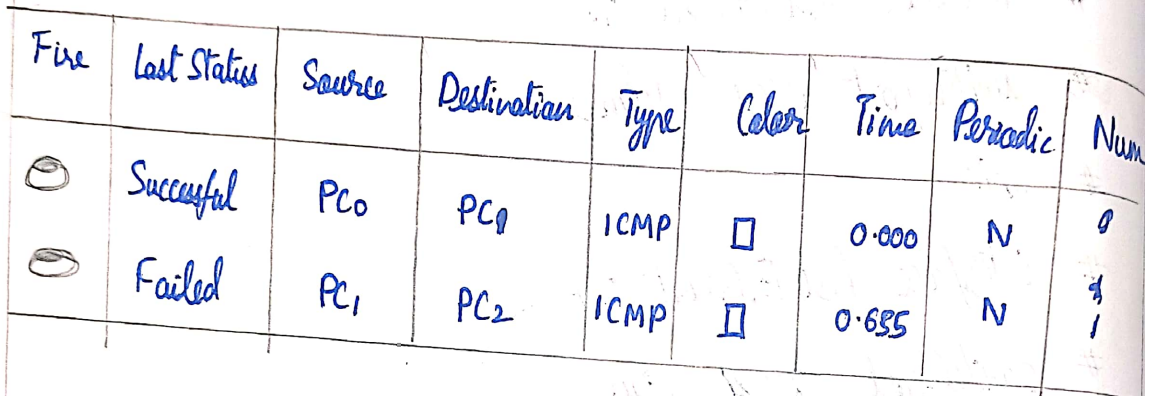 Fire Last Status Source Destination Type Color Time Periodic Num
Successful PC0 PC1 ICMP 0.000 N 0
Failed PC1 PC2 ICMP 0.655 N 1